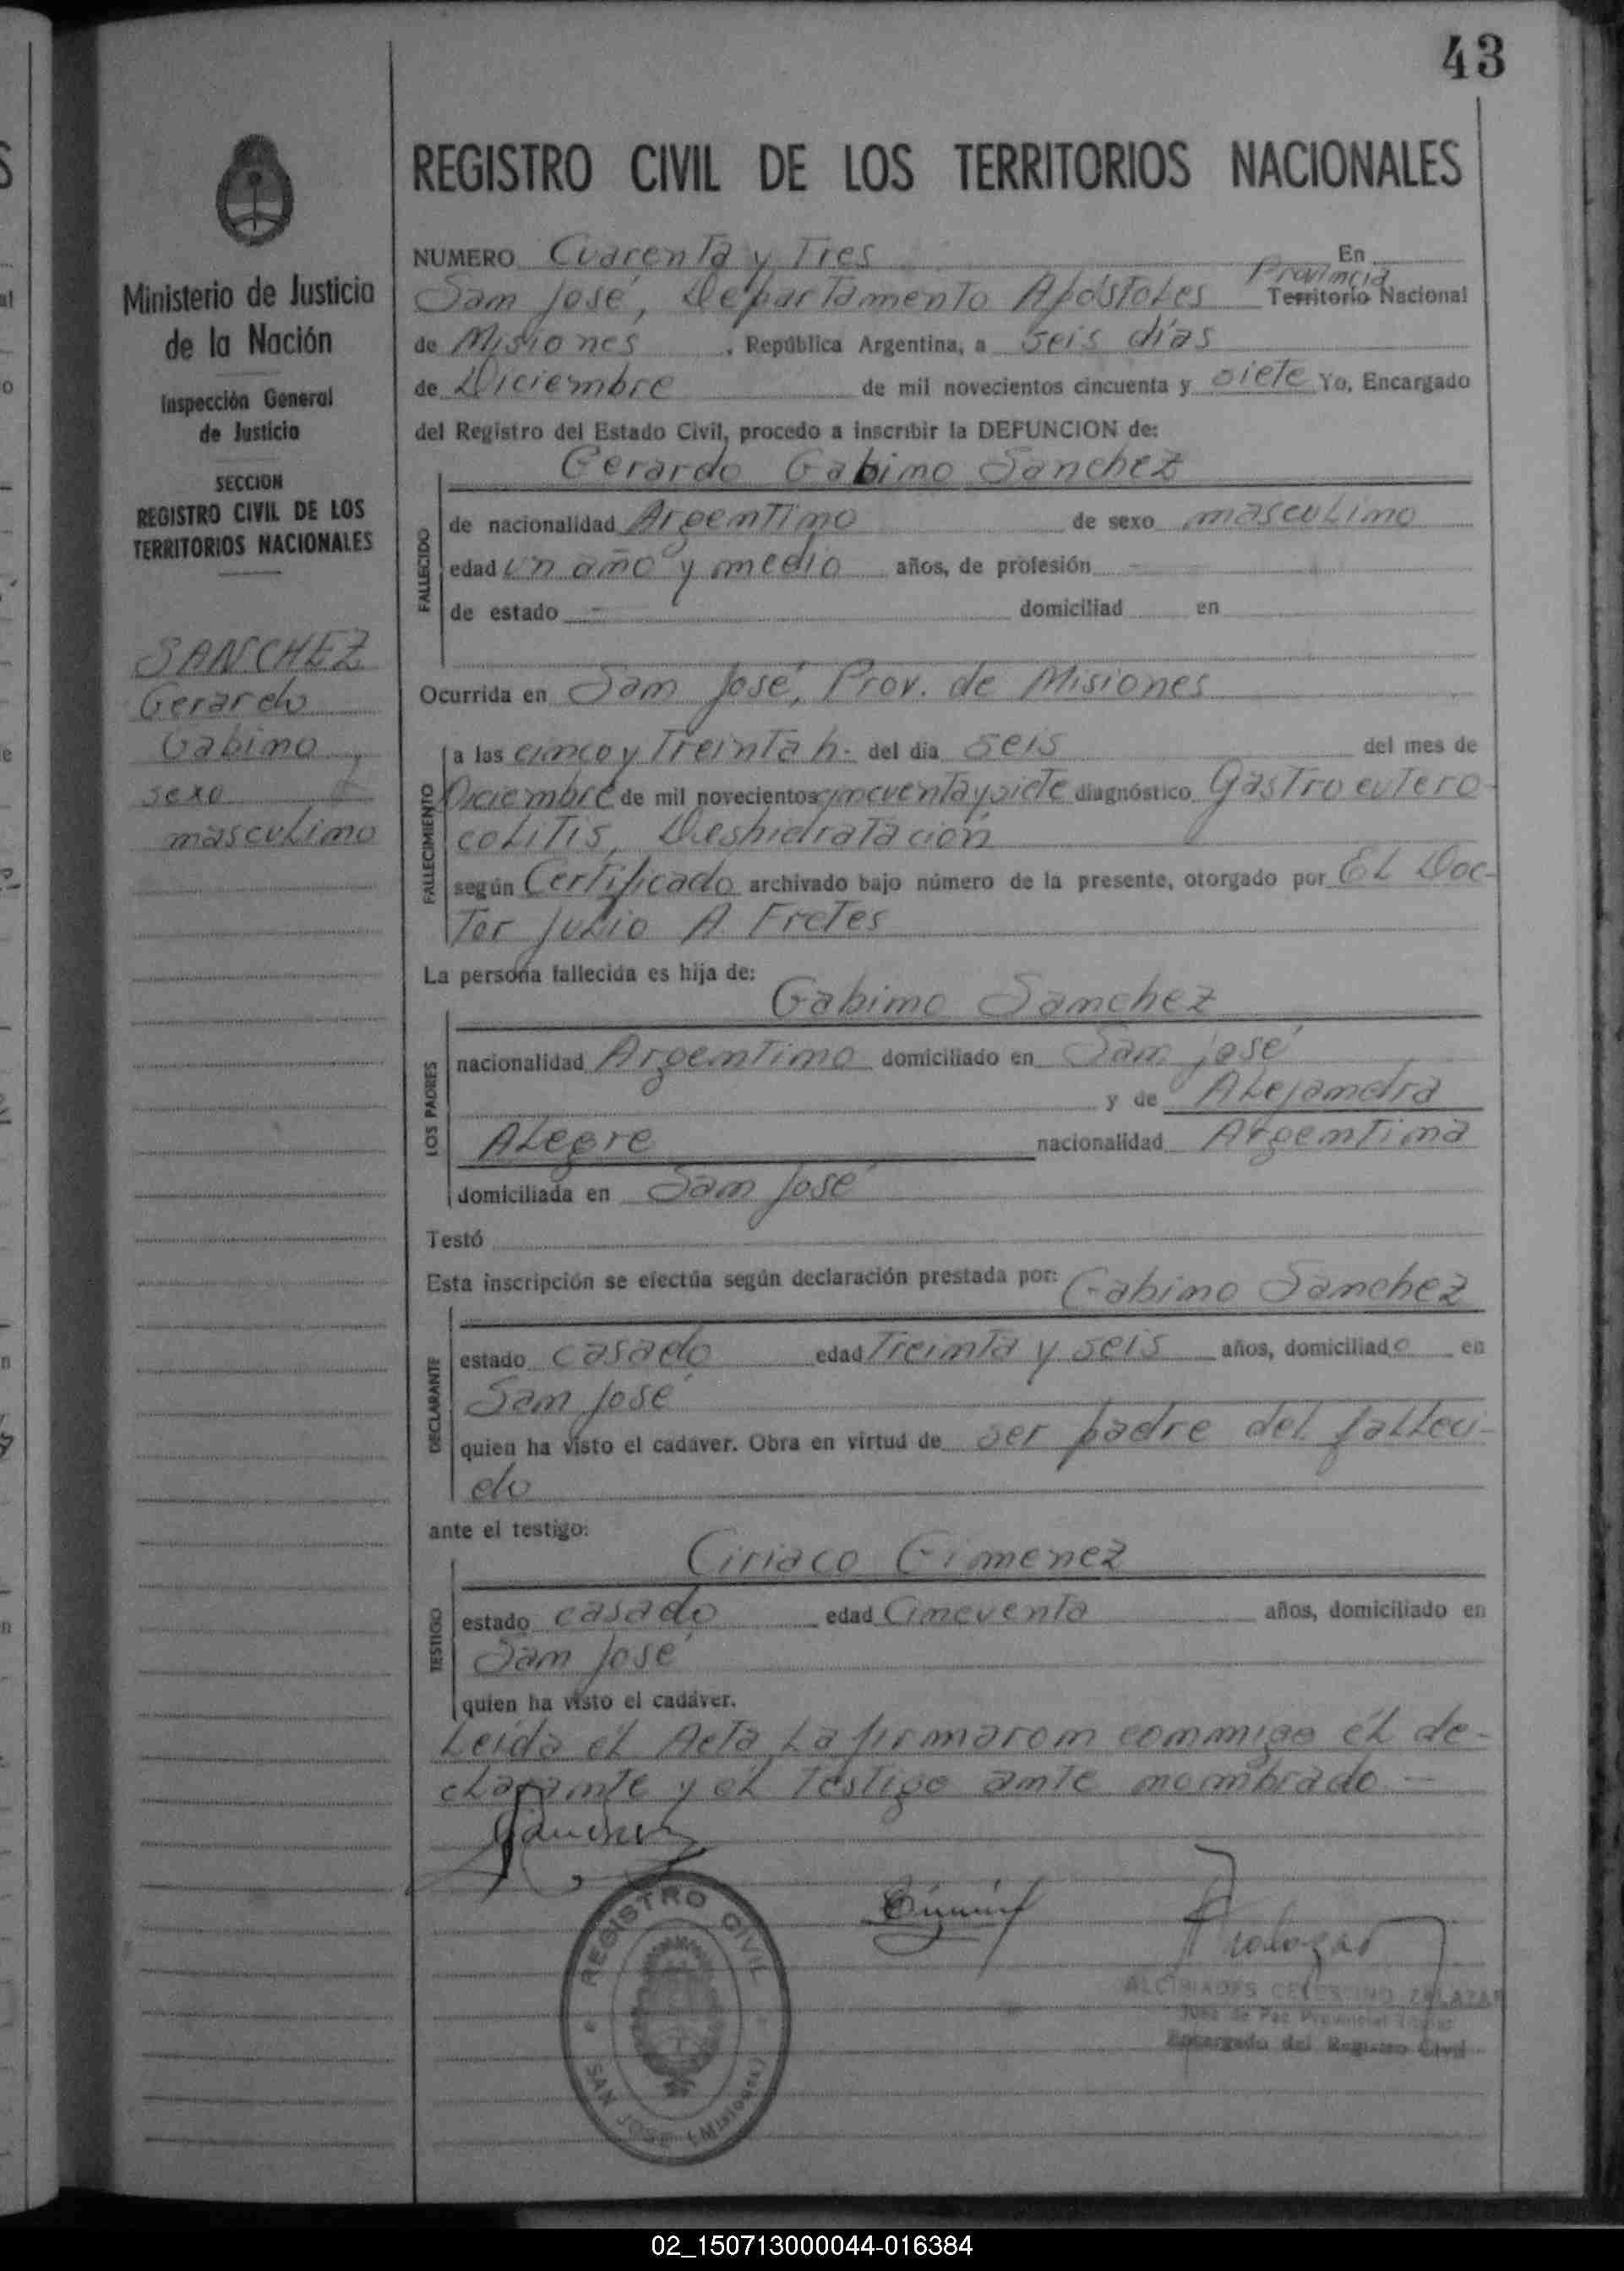 43
REGISTRO CIVIL DE LOS TERRITORIOS NACIONALES
Ministerio de Justicia
de la Nación
Inspección General
de Justicia
SECCION
REGISTRO CIVIL DE LOS
TERRITORIOS NACIONALES
SANCHEZ
Gerardo
Gabino
sexo
masculino
NUMERO Cuarenta y Tres En
San José, Departamento Apóstoles Provincia Territorio Nacional
de Misiones, República Argentina, a seis días
de Diciembre de mil novecientos cincuenta y siete Yo, Encargado
del Registro del Estado Civil, procedo a inscribir la DEFUNCION de:
Gerardo Gabino Sanchez
FALLECIDO
de nacionalidad Argentino de sexo masculino
edad un año y medio años, de profesión -
de estado - domiciliad en
Ocurrida en San José, Prov. de Misiones
FALLECIMIENTO
a las cinco y Treinta h. del día seis del mes de
Diciembre de mil novecientos cincuenta y siete diagnóstico Gastroentero
colitis, Deshidratación
según Certificado archivado bajo número de la presente, otorgado por El Doc-
tor Julio A Fretes
La persona fallecida es hija de:
Gabino Sanchez
LOS PADRES
nacionalidad Argentino domiciliado en San José
y de Alejandra
Alegre nacionalidad Argentina
domiciliada en San José
Testó
Esta inscripción se efectúa según declaración prestada por: Gabino Sanchez
DECLARANTE
estado casado edad Treinta y seis años, domiciliado en
San José
quien ha visto el cadáver. Obra en virtud de ser padre del falleci-
do
ante el testigo:
Ciriaco Gimenez
TESTIGO
estado casado edad Cincuenta años, domiciliado en
San José
quien ha visto el cadáver.
Leída el Acta, la firmaron conmigo el de-
clarante y el testigo ante nombrado -
REGISTRO CIVIL
SAN JOSE (Misiones)
ALCIBIADES CELESTINO ZALAZAR
Juez de Paz Provincial Titular
Encargado del Registro Civil
02_150713000044-016384